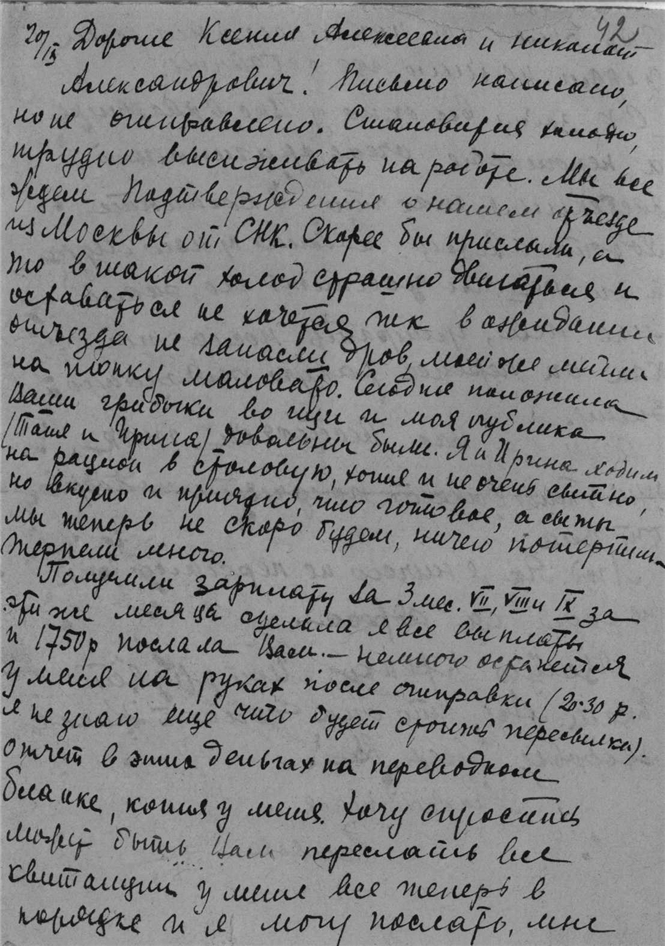 42
20/IX Дорогие Ксения Алексеевна и Николай
Александрович! Письмо написано,
но не отправлено. Становится холодно,
трудно высиживать на работе. Мы все
ждем подтверждения о нашем отъезде
из Москвы от СНК. Скорее бы прислали, а
то в такой холод страшно двигаться и
оставаться не хочется тк в ожидании
отъезда не запасли дров, моей же мебели
на топку маловато. Сегодня положила
Ваши грибочки во щи и моя публика
(Таня и Ирина) довольны были. Я и Ирина ходим
на рацион в столовую, хотя и не очень сытно,
но вкусно и приятно, что готовое, а сыты
мы теперь не скоро будем, ничего потерпим –
терпели много.
Получили зарплату за 3 мес. VII, VIII и IX за
эти же месяца сделала я все выплаты
и 1750р послала Вам. – немного останется
у меня на руках после отправки (20-30 р.
я не знаю еще что будет стоить пересылка).
отчет в этих деньгах на переводном
бланке, копия у меня. Хочу спросить
может быть Вам переслать все
квитанции у меня все теперь в
порядке и я могу послать, мне